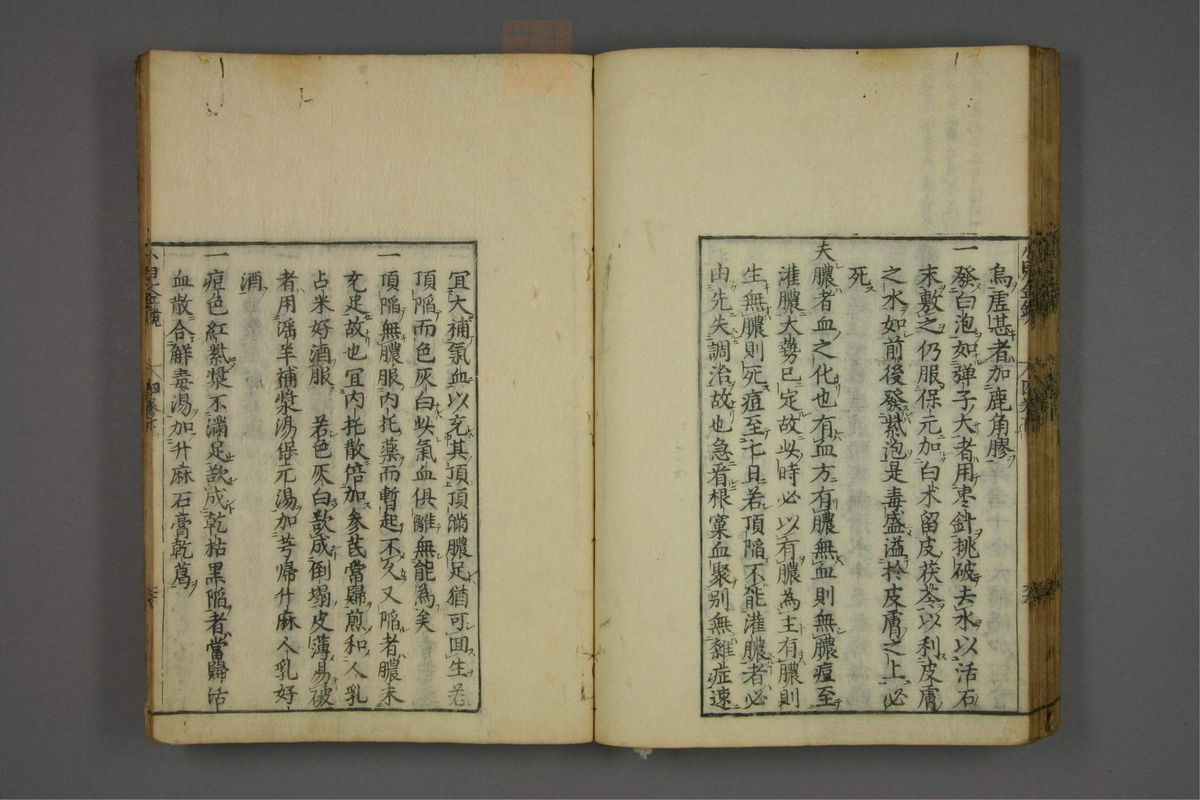 烏虛甚者加鹿角膠
一發白泡如弹子大者用枣針挑破去水以活石
末敷之仍服保元加白术留皮茯苓以利皮膚
之水如前後發紫泡是毒盛溢於皮膚之上必
死
夫膿者血之化也有血方有膿無血則無膿痘至
灌膿大勢已定故此時必以有膿為主有膿則
生無膿則死痘至七日若頂陷不能灌膿者必
由先失調治故也急看根窠血聚别無雜症速
宜大補氣血以充其頂頂滿膿足猶可回生若
頂陷而色灰白此氣血俱離無能為矣
一頂陷無膿服内托藥而暫起不久又陷者膿未
充足故也宜内托散倍加参芪當歸煎和人乳
占米好酒服 若色灰白欲成倒塌皮薄易破
者用 羊補漿湯保元湯加芎歸升麻人乳好
酒
一痘色紅紫漿不滿足欲成乾枯黒陷者當歸活
血散合解毒湯加升麻石膏乾葛
小兒全鏡